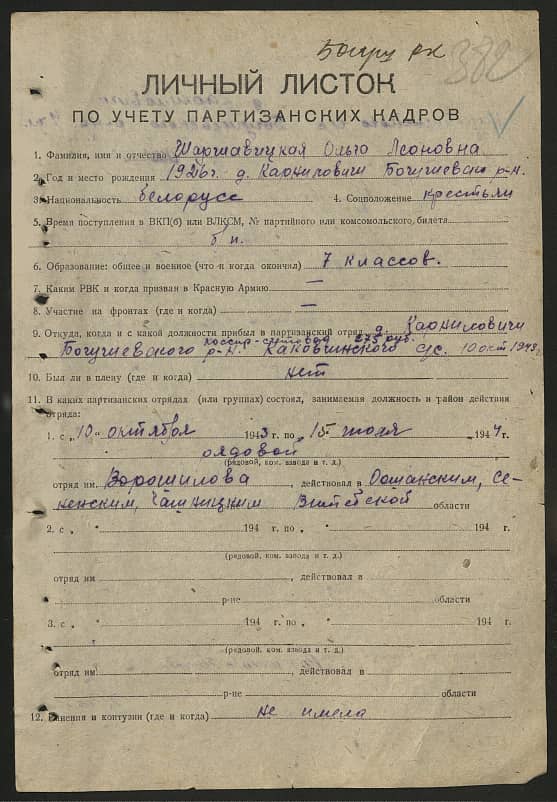 Богуш рк 382
ЛИЧНЫЙ ЛИСТОК
ПО УЧЕТУ ПАРТИЗАНСКИХ КАДРОВ
1. Фамилия, имя и отчество Шаршавицкая Ольга Леоновна
2. Год и место рождения 1926г. д. Карниловичи Богушевск р-н.
3. Национальность белорусс 4. Соцположение крестьян
5. Время поступления в ВКП(б) или ВЛКСМ, № партийного или комсомольского билета
б/п.
6. Образование: общее и военное (что и когда окончил) 7 классов.
7. Каким РВК и когда призван в Красную Армию —
8. Участие на фронтах (где и когда) —
9. Откуда, когда и с какой должности прибыл в партизанский отряд д. Карниловичи
кассир-счетовод 275 руб.
Богушевского р-н. с/с. 10 окт 1943г.
10. Был ли в плену (где и когда) нет
11. В каких партизанских отрядах (или группах) состоял, занимаемая должность и район действия
отряда:
1. с „10„ октября 1943 г. по „15 июля 1944 г.
рядовой
(рядовой, ком. взвода и т. д.)
отряд им. Ворошилова, действовал в Оршанским, Се-
ненским, Чашницким Витебской области
2. с „ 194 г. по „ 194 г.
(рядовой, ком. взвода и т. д.)
отряд им , действовал в
р-не области
3. с „ 194 г. по „ 194 г.
(рядовой, ком. взвода и т. д.)
отряд им. , действовал в
р-не области
12. Ранения и контузии (где и когда) не имела